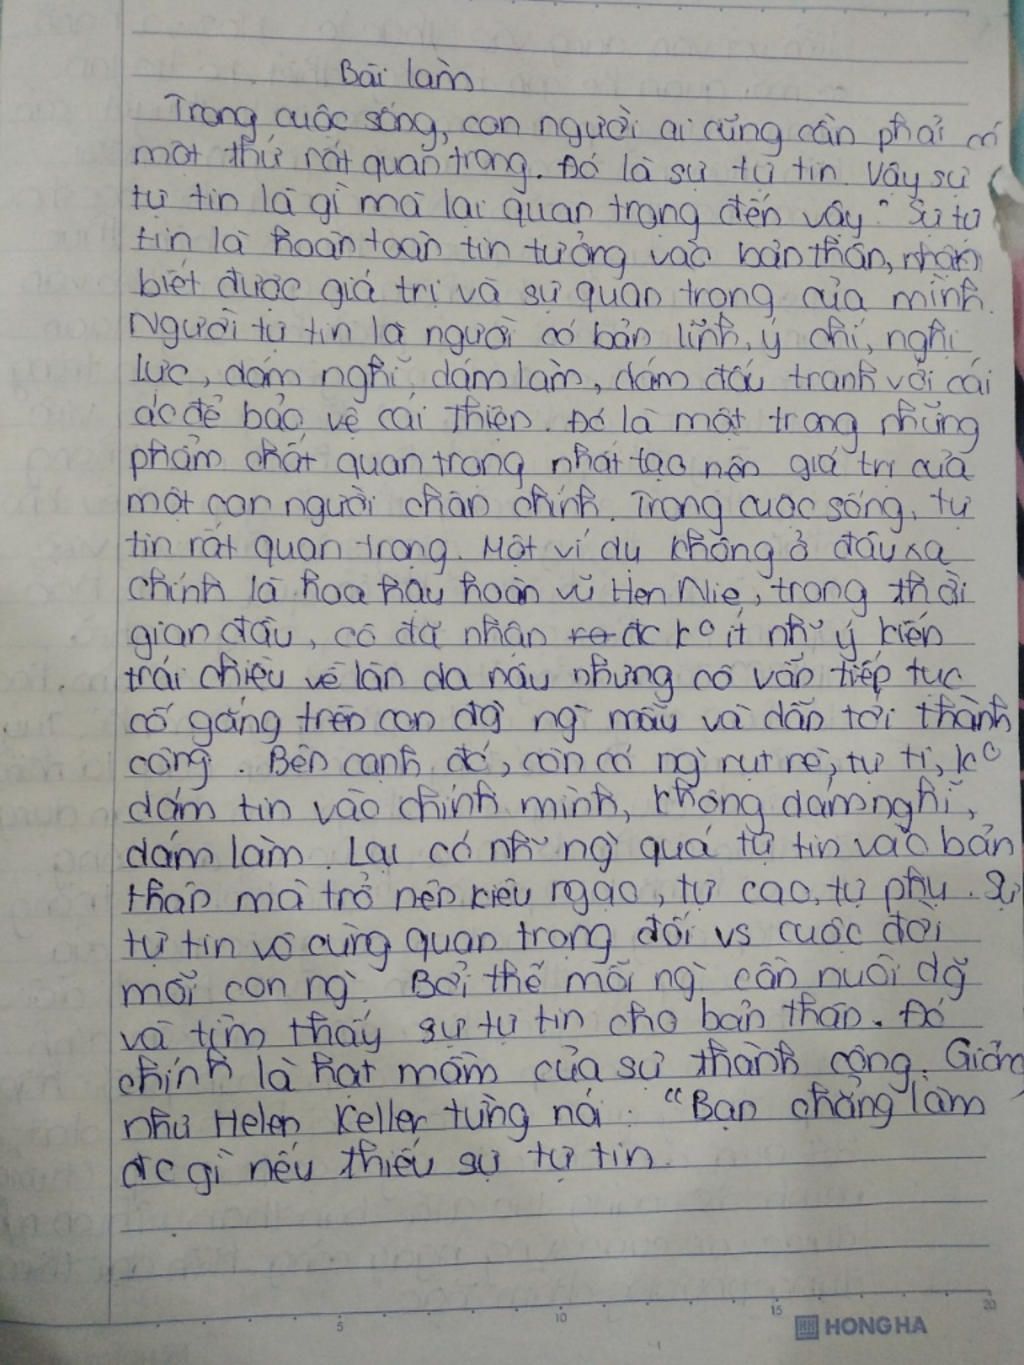 Bài làm
Trong cuộc sống, con người ai cũng cần phải có
một thứ rất quan trọng. Đó là sự tự tin. Vậy sự
tự tin là gì mà lại quan trọng đến vậy? Sự tự
tin là hoàn toàn tin tưởng vào bản thân, nhận
biết được giá trị và sự quan trọng của mình.
Người tự tin là người có bản lĩnh, ý chí, nghị
lực, dám nghĩ, dám làm, dám đấu tranh với cái
ác để bảo vệ cái thiện. Đó là một trong những
phẩm chất quan trọng nhất tạo nên giá trị của
một con người chân chính. Trong cuộc sống, tự
tin rất quan trọng. Một ví dụ không ở đâu xa
chính là hoa hậu hoàn vũ Hen Nie, trong thời
gian đầu, cô đã nhận đc ko ít nh~ ý kiến
trái chiều về làn da nâu nhưng cô vẫn tiếp tục
cố gắng trên con đg ng` mẫu và dẫn tới thành
công. Bên cạnh đó, còn có ng` rụt rè, tự ti, ko
dám tin vào chính mình, không dám nghĩ,
dám làm. Lại có nh~ ng` quá tự tin vào bản
thân mà trở nên kiêu ngạo, tự cao, tự phụ. Sự
tự tin vô cùng quan trọng đối vs cuộc đời
mỗi con ng`. Bởi thế mỗi ng` cần nuôi dg~
và tìm thấy sự tự tin cho bản thân. Đó
chính là hạt mầm của sự thành công. Giống
như Helen Keller từng nói: "Bạn chẳng làm
đc gì nếu thiếu sự tự tin.
5 10 15 20
HONG HA